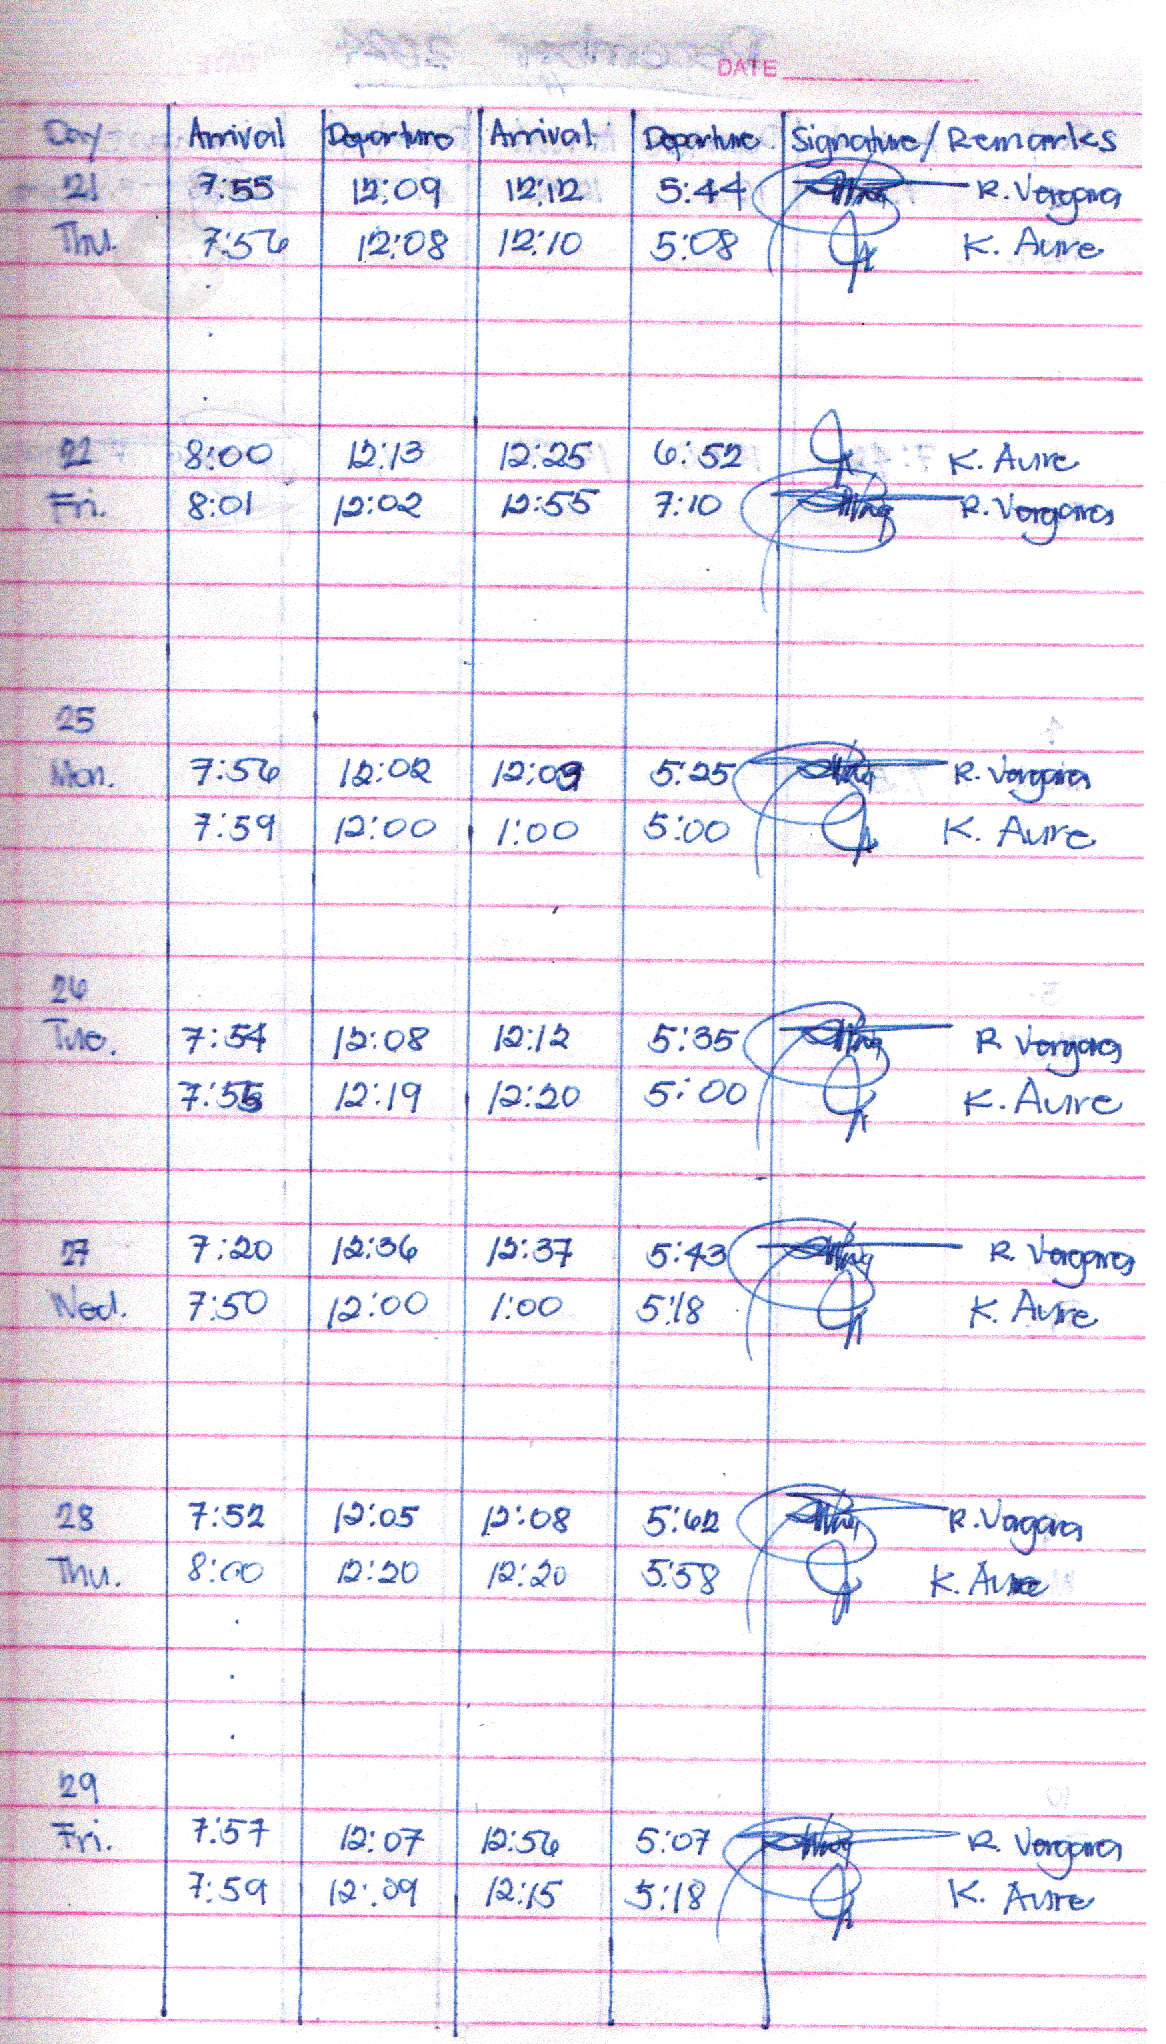 DATE
Day Arrival Departure Arrival Departure Signature/Remarks
21 7:55 12:09 12:12 5:44 R. Vergara
Thu. 7:56 12:08 12:10 5:08 K. Aure
22 8:00 12:13 12:25 6:52 K. Aure
Fri. 8:01 12:02 12:55 7:10 R. Vergara
25
Mon. 7:56 12:02 12:09 5:25 R. Vergara
7:59 12:00 1:00 5:00 K. Aure
26
Tue. 7:54 12:08 12:12 5:35 R Vergara
7:55 12:19 12:20 5:00 K. Aure
27 7:20 12:36 12:37 5:43 R. Vergara
Wed. 7:50 12:00 1:00 5:18 K. Aure
28 7:52 12:05 12:08 5:42 R. Vergara
Thu. 8:00 12:20 12:20 5:58 K. Aure
29
Fri. 7:57 12:07 12:56 5:07 R. Vergara
7:59 12:09 12:15 5:18 K. Aure